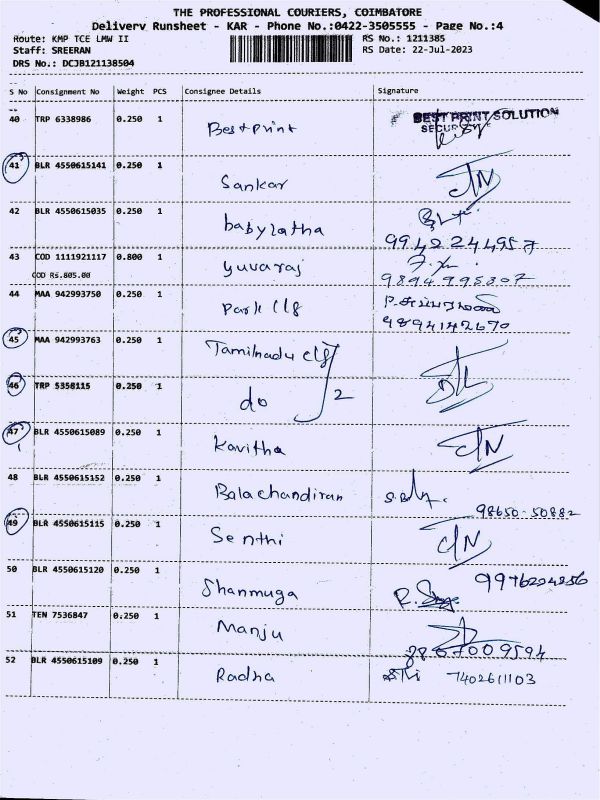 THE PROFESSIONAL COURIERS, COIMBATORE
Delivery Runsheet - KAR - Phone No.:0422-3505555 - Page No.:4
Route: KMP TCE LMW II RS No.: 1211385
Staff: SREERAN RS Date: 22-Jul-2023
DRS No.: DCJB121138504
S No Consignment No Weight PCS Consignee Details Signature
40 TRP 6338986 0.250 1 Bestprint BEST PRINT SOLUTION
41 BLR 4550615141 0.250 1 Sankar
42 BLR 4550615035 0.250 1 babylatha
9942244957
43 COD 1111921117 0.800 1 yuvaraj
COD Rs.805.00 9894995807
44 MAA 942993750 0.250 1 Park clg
9894142670
45 MAA 942993763 0.250 1 Tamilnadu clg
46 TRP 5358115 0.250 1 do 2
47 BLR 4550615089 0.250 1 Kavitha
48 BLR 4550615152 0.250 1 Balachandiran
98650-50882
49 BLR 4550615115 0.250 1 Senthi
50 BLR 4550615120 0.250 1 Shanmuga
51 TEN 7536847 0.250 1 Manju
8867009594
52 BLR 4550615109 0.250 1 Radha 7402611103